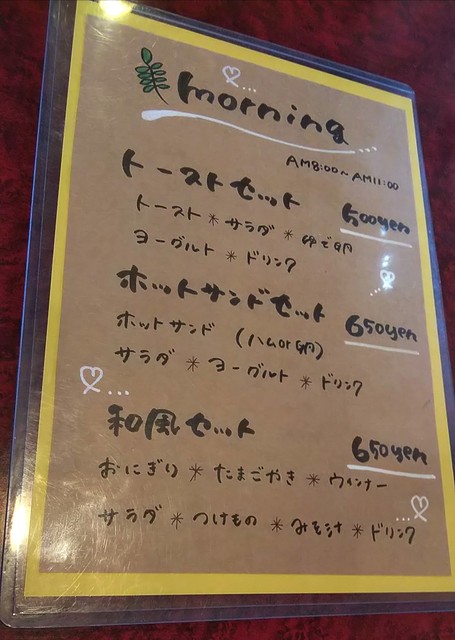 morning
AM8:00～AM11:00
トーストセット 500yen
トースト＊サラダ＊ゆで卵
ヨーグルト＊ドリンク
ホットサンドセット 650yen
ホットサンド (ハムor卵)
サラダ＊ヨーグルト＊ドリンク
和風セット 650yen
おにぎり＊たまごやき＊ウィンナー
サラダ＊つけもの＊みそ汁＊ドリンク